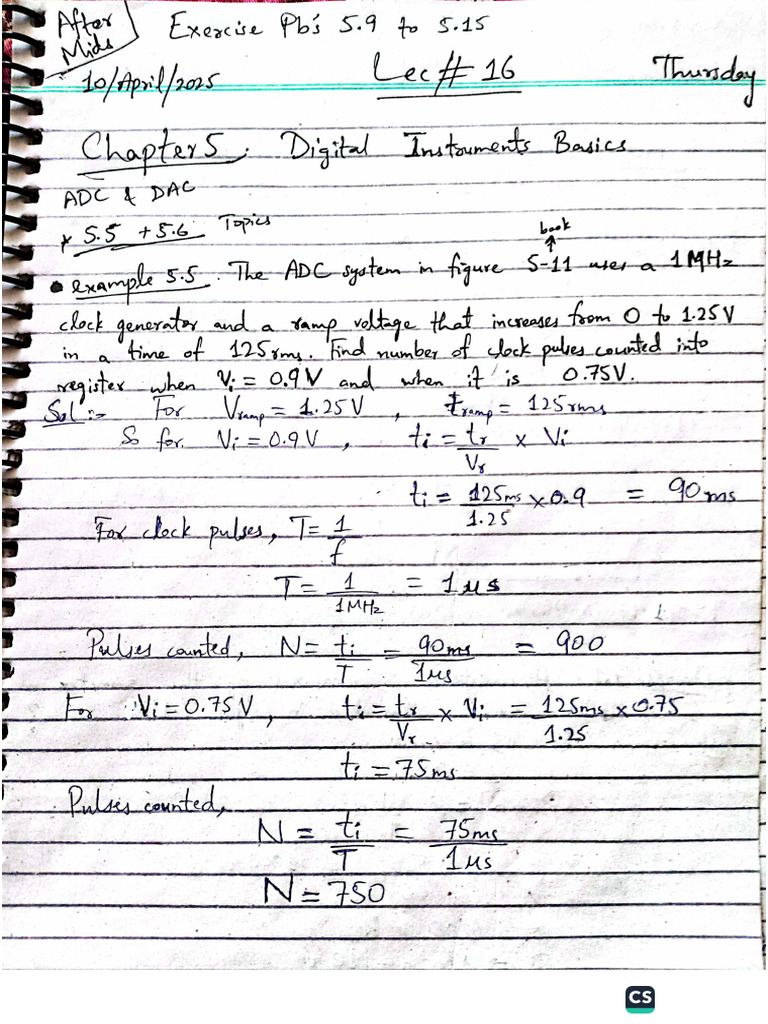 After Mids
Exercise Pb's 5.9 to 5.15
10/April/2025 Lec# 16 Thursday
Chapter 5: Digital Instruments Basics
ADC & DAC
* 5.5 + 5.6 Topics
book
• example 5.5. The ADC system in figure 5-11 uses a 1MHz
clock generator and a ramp voltage that increases from 0 to 1.25V
in a time of 125ms. Find number of clock pulses counted into
register when Vi = 0.9V and when it is 0.75V.
Sol:- For Vramp = 1.25V, tramp = 125ms
So for Vi = 0.9V, ti = tr/Vr × Vi
ti = 125ms/1.25 × 0.9 = 90ms
For clock pulses, T = 1/f
T = 1/1MHz = 1μs
Pulses counted, N = ti/T = 90ms/1μs = 900
For Vi = 0.75V, ti = tr/Vr × Vi = 125ms/1.25 × 0.75
ti = 75ms
Pulses counted,
N = ti/T = 75ms/1μs
N = 750
CS